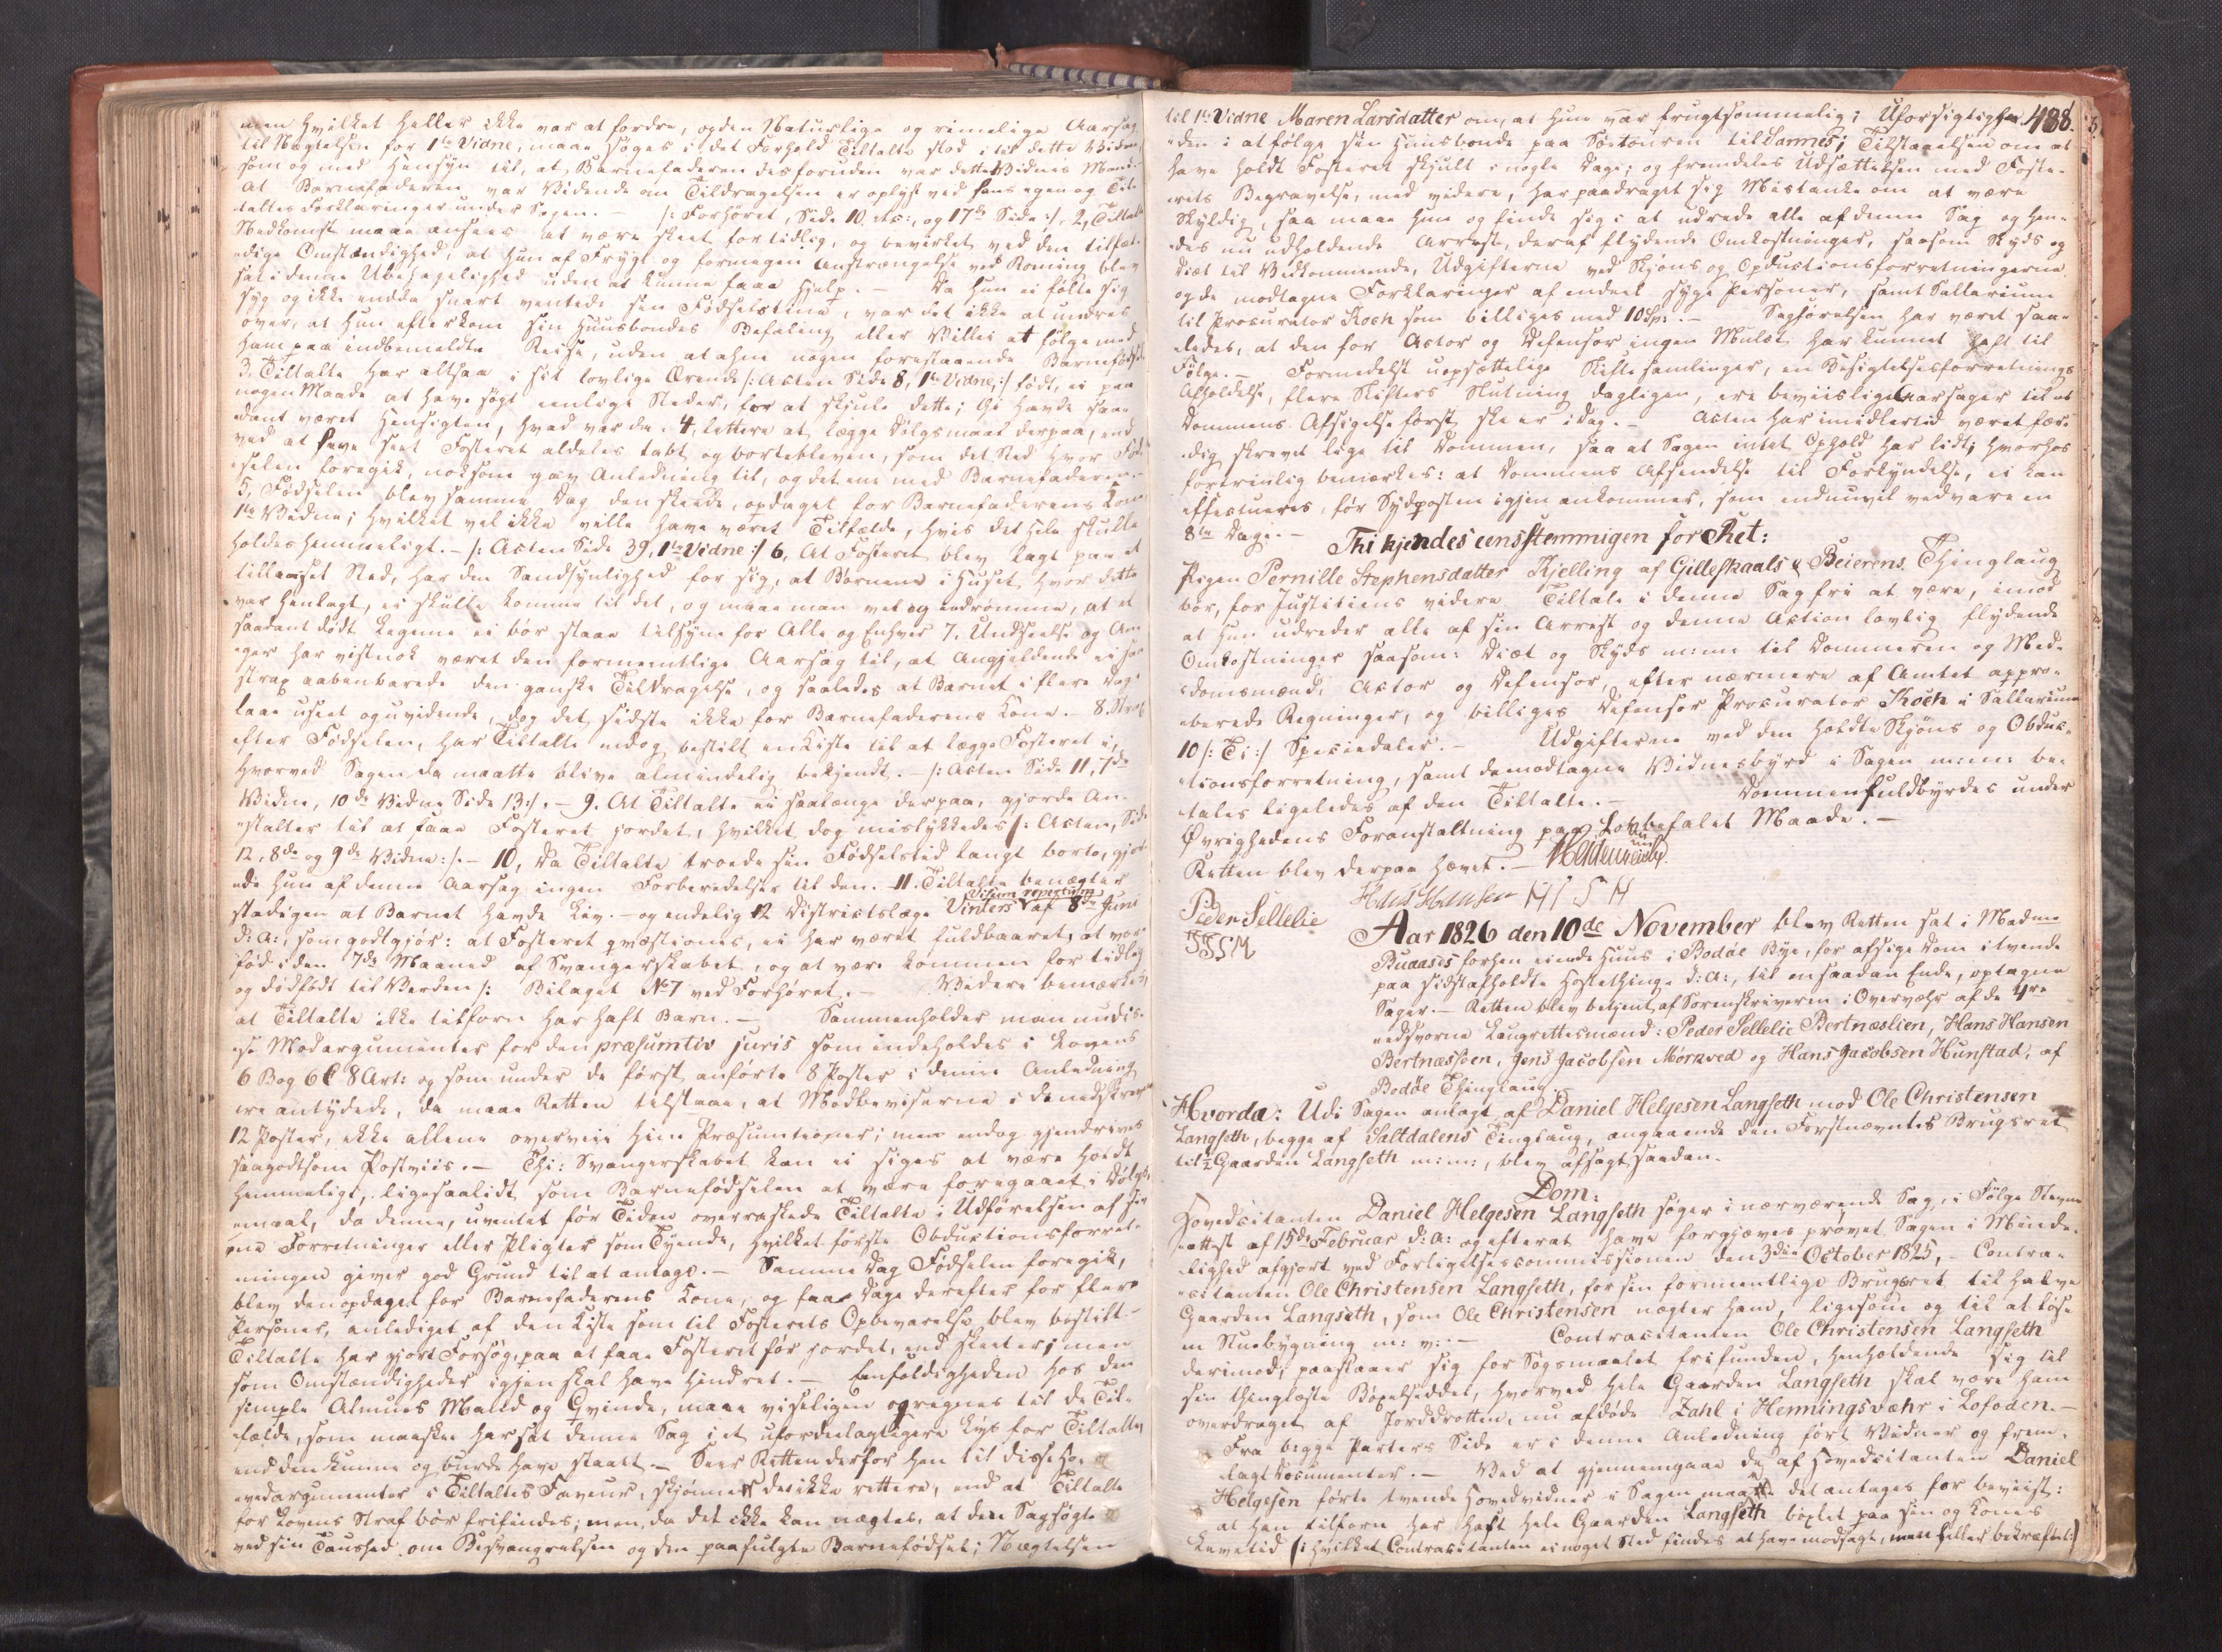 men hvilket heller ikke var at fordre, og den Naturlige og rimelige Aarsag
til Nægtelsen for 1te Vidne, maae søges i det Forhold Tiltalte stod i til dette Vidne
som og med Hensyn til, at Barnefaderen desforuden var dette Vidnes Mand.
At Barnefaderen var Vidende om Tildragelsen er oplyst ved hans egen og Til-
taltes Forklaringer under Sagen. — /: Forhøret, Side 10 etc:, og 17de Side :/. 2, Tiltaltes
Nedkomst maae ansees at være skeet for tidlig, og bevirket ved den tilfæl-
dige Omstændighed, at hun af Frygt og formegen Anstrængelse ved Roning blev
sat i denne Ubehagelighed uden at kunne faae Hjelp. — Da hun ei følte sig
syg og ikke endda snart ventede sin Fødselstime, var det ikke at undres
over, at hun efterkom sin Huusbondes Befaling eller Villie at følge med
ham paa indbemeldte Reise, uden at ahne nogen forestaaende Barnefødsel
3. Tiltalte har altsaa i sit lovlige Ærende /: Acten Side 8, 1te Vidne :/ født, ei paa
nogen Maade at have søgt eenlige Steder, for at skjule dette; Thi havde saa-
dant været Hensigten, hvad var da. 4, lettere at lægge Dølgsmaal derpaa, end
ved at have seet Fosteret aldeles tabt og borteblevn, som det Sted hvor Fød-
selen foregik, noksom gav Anledning til, og det ene med Barnefaderen. —
5, Fødselen blev samme Dag den skeede, opdaget for Barnefaderens Kone
1te Vidne; hvilket vel ikke ville have været Tilfælde, hvis det hele skulle
holdes hemmeligt. — /: Acten Side 39, 1te Vidne :/ 6, At Fosteret blev lagt paa et
tillaaset Sted, har den Sandsynlighed for sig, at Børnene i Huset, hvor dette
var henlagt, ei skulle komme til det, og maae man vel og indrømme, at et
saadant dødt Legeme ei bør staae tilsyne for Alle og Enhver 7. Undseelse og An-
ger har vistnok været den formeentlige Aarsag til, at Angjeldende ei saa
strax aabenbarede den ganske Tildragelse, og saaledes at Barnet i flere Dage
laae useet og uvidende, dog det sidste ikke for Barnefaderens Kone. 8. Strax
efter Fødselen, har Tiltalte endog bestilt en Kiste til at lægge Fosteret i,
hvorved Sagen da maatte blive almindelig bekjendt. — /: Acten Side 11, 7de
Vidne, 10de Vidne Side 13 :/. — 9. At Tiltalte ei saalænge derpaa, gjorde An-
stalter til at faae Fosteret jordet, hvilket dog mislykkedes /: Acten, Side
12, 8de og 9de Vidne :/. — 10, Da Tiltalte troede sin Fødselstid langt borte, gjor-
de hun af denne Aarsag ingen Forberedelser til den. — 11. Tiltalte benægter
stadigen at Barnet havde Liv. — og endelig 12 Districtslæge Vinters Visum repertum af 8de Juni
d: A:, som godtgjør: at Fosteret qvæstionis, ei har været fuldbaaret, at være
fød i den 7de Maaned af Svangerskabet, og at være kommen for tidlig
og dødfødt til Verden /: Bilaget No 7 ved Forhøret. — Videre bemærkes
at Tiltalte ikke tilforn har haft Barn. — Sammenholder man nu dis-
se Modargumenter for den præsumtiv juris som indeholdes i Lovens
6 Bog 6 C 8 Art: og som under de først anførte 8 Poster i denne Anledning
ere antydede, da maae Retten tilstaae, at Modbeviserne i de nedskrevne
12 Poster, ikke allene overveie hine Præsumtioner; men endog gjendrives
saagodtsom Postviis. — Thi: Svangerskabet kan ei siges at være holdt
hemmeligt, ligesaalidt som Barnefødselen at være foregaaet i Dølgs-
maal, da denne, uventet før Tiden overraskede Tiltalte i Udførelsen af sine
Forretninger eller Pligter som Tyende, hvilket første Obductionsforret-
ningen giver god Grund til at antage. — Samme Dag Fødselen foregik,
blev den opdaget for Barnefaderens Kone, og faae Dage derefter for flere
Personer, anlediget af den Kiste som til Fosterets Opbevarelse blev bestilt —
Tiltalte har gjort Forsøg paa at faae Fosteret før jordet, end skeet er; men
som Omstændigheder igjen skal have hindret. — Eenfoldigheden hos den
simple Almues Mand og Qvinde, maae visseligen og regnes til de Til-
fælde, som maaskee har sat denne Sag i et ufordeelagtigere Lys for Tiltalte,
end den kunne og burde have staaet. — Seer Retten derfor hen til disse Ho-
vedargumenter i Tiltaltes Faveur, skjønnes det ikke rettere, end at Tiltalte
for Lovens Straf bør frifindes; men, da det ikke kan nægtes, at den Sagsøgte
ved sin Taushed om Besvangrelsen og den paafulgte Barnefødsel; Nægtelsen
til 1te Vidne Maren Larsdatter om, at hun var frugtsommelig; Uforsigtighe- 488.
den i at følge sin Huusbonde paa Søetouren til Sannes; Tilstaaelsen om at
have holdt Fosteret skjult i nogle Dage; og fremdeles Udsættelsen med Foste-
rets Begravelse, med videre, har paadraget sig Mistanke om at være
Skyldig, saa maae hun og finde sig i at udrede alle af denne Sag og hen-
des nu udholdende Arrest, deraf flydende Omkostninger, saasom Skyds og
Diæt til Vedkommende, Udgifterne ved Skjøns og Obductionsforretningerne
og de modtagne Forklaringer af endeel syge Personer, samt Sallarium
til Procurator Koch som billiges med 10 Sp: — Sagførelsen har været saa-
ledes, at den for Actor og Defensor ingen Mulct har kunnet haft til
Følge. — Formedelst uopsættelige Skiftesamlinger, en Besigtelsesforretnings
Afholdelse, flere Skifters Slutning dagligen, ere beviislige Aarsager til at
Dommens Afsigelse først skeer idag. — Acten har imidlertid været fær-
dig skrevet lige til Dommen, saa at Sagen intet Ophold har lidt; hvorhos
forevinlig bemærkes: at Dommens Afsendelse til Forkyndelse, ei kan
effectueres, før Sydposten igjen ankommer, som endnu vil vedvare en
8te Dage. —
Thi kjendes eensstemmigen for Ret:
Pigen Pernille Stephensdatter Kjelling af Gilleskaals & Beierens Thinglaug
bør, for Justitiens videre Tiltale i denne Sag fri at være, imod
at hun udreder alle af sin Arrest og denne Action lovlig flydende
Omkostninger saasom: Diæt og Skyds m: m: til Dommeren og Med-
domsmænd, Actor og Defensor, efter nærmere af Amtet appro-
berede Regninger, og billiges Defensor Procurator Koch i Sallarium
10 /: Ti :/ Speciedaler. — Udgifterne ved den holdte Skjøns og Obduc-
tionsforretning, samt de modtagne Vidnesbyrd i Sagen m: m: be-
tales ligeledes af den Tiltalte. — Dommen fuldbyrdes under
Øvrighedens Foranstaltning paa Lovbefalet Maade. —
Retten blev derpaa hævet. —
Hans Hansen H H S H
Peder Sellelie
Aar 1826 den 10de November blev Retten sat i Madme
Buaases forhen eiende Huus i Bodøe Bye, for afsige Dom i tvende
paa sidstafholdte Høstethinge d: A:, til en saadan Ende, optagne
Sager. — Retten blev betjent af Sorenskriveren i Overvær af de 4re
eedsvorne Laugrettesmænd: Peder Sellelie Bertnæslien, Hans Hansen
Bertnæssøen, Jens Jacobsen Mørkved og Hans Jacobsen Hunstad, af
Bodøe Thinglaug.
Hvorda: Udi Sagen anlagt af Daniel Helgesen Langseth mod Ole Christensen
Langseth, begge af Saltdalens Tinglaug, angaaende den Førstnævntes Brugsret
til ½ Gaarden Langseth m: m:, blev afsagt saadan.
Dom:
Hovedcitanten Daniel Helgesen Langseth søger i nærværende Sag, i Følge Stevne-
attest af 15de Februar d: A: og efterat have forgjæves prøvet Sagen i Minde-
lighed afgjort ved Forligelsescommissionen den 3die October 1825, — Contra-
citanten Ole Christensen Langseth, for sin formeentlige Brugsret til halve
Gaarden Langseth, som Ole Christensen nægter ham, ligesom og til at løse
en Stuebygning m: v: — Contracitanten Ole Christensen Langseth
derimod, paastaaer sig for Søgsmaalet frifunden, henholdende sig til
sin thinglæste Bøxelseddel, hvorved hele Gaarden Langseth skal være ham
overdraget af Jorddrotten, nu afdøde Zahl i Henningsvæhr i Lofoden. —
Fra begge Parters Side er i denne Anledning ført Vidner og frem-
lagt Documenter. — Ved at gjennemgaae de af Hovedcitanten Daniel
Helgesen førte tvende Hovedvidner i Sagen maatte det antages for beviist:
at han tilforn har haft hele Gaarden Langseth bøxlet paa sin og Kones
Levetid (: hvilket Contracitanten ei noget Sted findes at have modsagt, men heller bekræftet :)